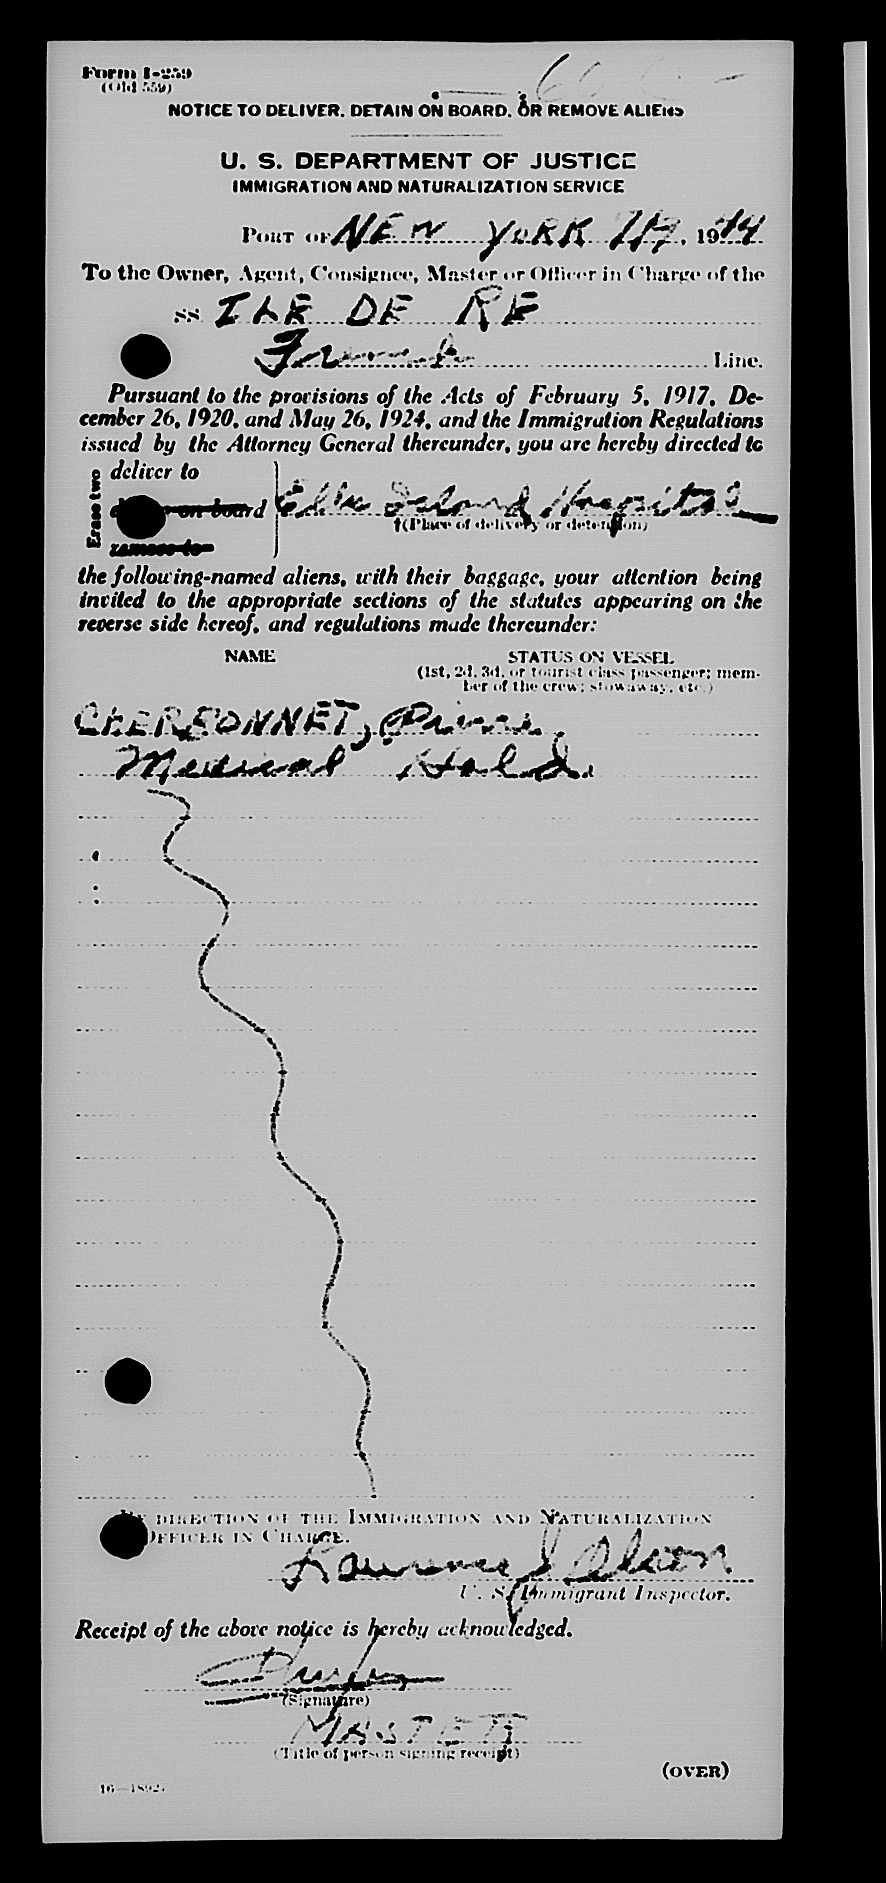 Form I-259
(Old 559)
NOTICE TO DELIVER, DETAIN ON BOARD, OR REMOVE ALIENS
U. S. DEPARTMENT OF JUSTICE
IMMIGRATION AND NATURALIZATION SERVICE
PORT OF NEW YORK 7/7, 1944
To the Owner, Agent, Consignee, Master or Officer in Charge of the
SS ILE DE RE
French Line.
Pursuant to the provisions of the Acts of February 5, 1917, De-
cember 26, 1920, and May 26, 1924, and the Immigration Regulations
issued by the Attorney General thereunder, you are hereby directed to
Erase two
deliver to
on board
remove to
Ellis Island Hospital
†(Place of delivery or detention)
the following-named aliens, with their baggage, your attention being
invited to the appropriate sections of the statutes appearing on the
reverse side hereof, and regulations made thereunder:
NAME STATUS ON VESSEL
(1st, 2d, 3d, or tourist class passenger; mem-
ber of the crew; stowaway, etc.)
CHERBONNET, Pierre
Medical Hold.
BY DIRECTION OF THE IMMIGRATION AND NATURALIZATION
OFFICER IN CHARGE.
Lawrence J Olsen
U. S. Immigrant Inspector.
Receipt of the above notice is hereby acknowledged.
(Signature)
MASTER
(Title of person signing receipt)
(OVER)